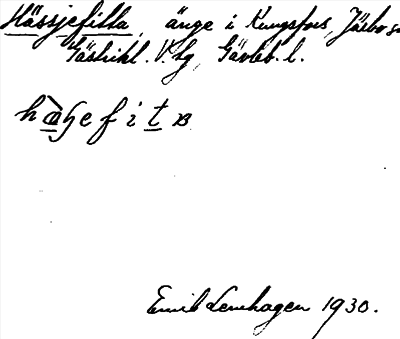 Hässjefitta, änge i Kungsfors, Järbo sn
Gästrikl. V. hg, Gävleb. l.
Emil Lenhagen 1930.